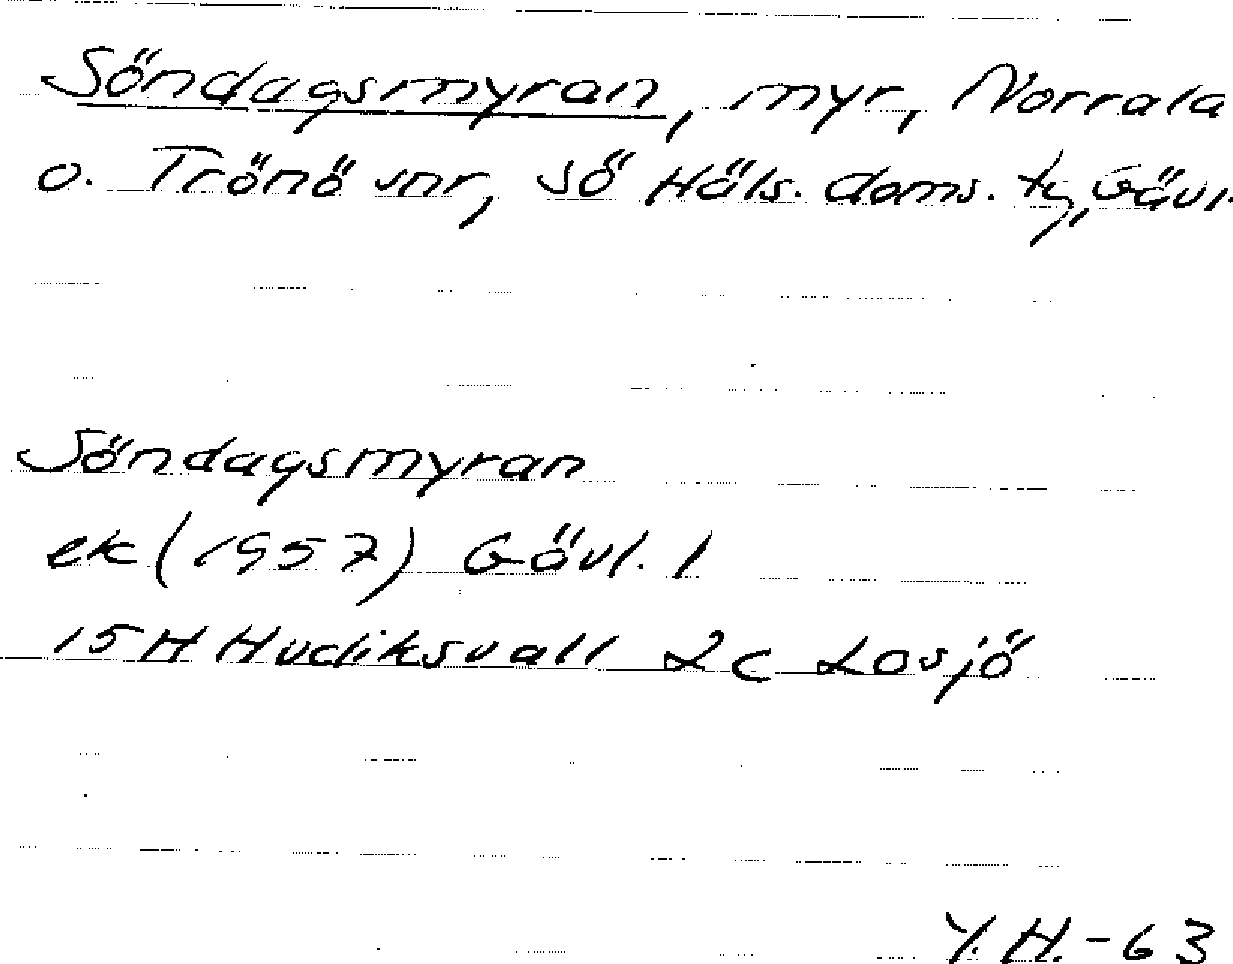 Söndagsmyran, myr, Norrala
o. Trönö snr, sö Häls. doms. tg, Gävl.
Söndagsmyran
ek (1957) Gävl. l
15 H Hudiksvall 2 c Losjö
Y. H. - 63